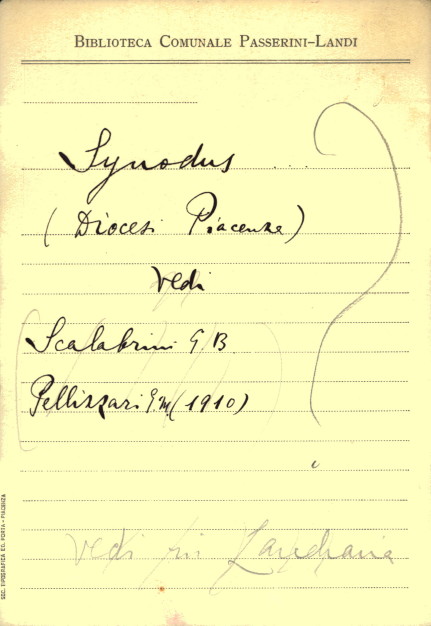 BIBLIOTECA COMUNALE PASSERINI-LANDI
Synodus ...
(Diocesi Piacenza)
Vedi
Scalabrini G B
Pellizzari G. M. (1910)
?
Vedi
SOC. TIPOGRAFICA ED. PORTA - PIACENZA